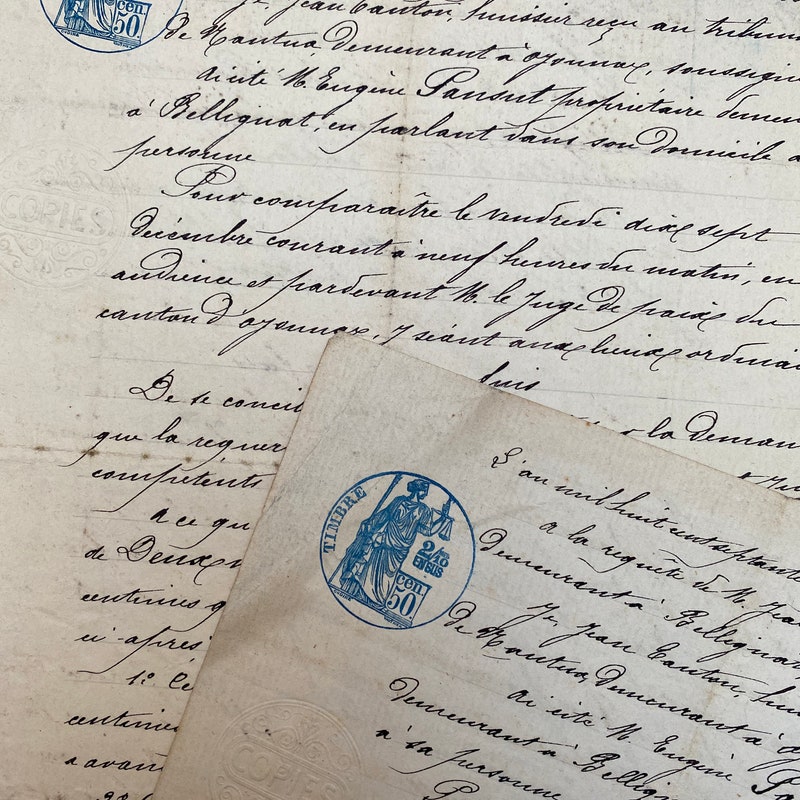 CEN.
50
Je, Jean Canton, huissier reçu au tribun
de Nantua demeurant à oyonnax, soussign
ai cité M. Eugène Pansut propriétaire demeu
à Bellignat, en parlant dans son domicile à
personne
Pour comparaître le vendredi dix sept
décembre courant à neuf heures du matin, en
audience et pardevant M. le Juge de paix du
canton d'oyonnax, y séant aux lieux ordinai
COPIES
De se concil
la deman
que la requer
compétents
a ce qu
de Deux
centimes
ci-après
1º
centimes
avan
TIMBRE
2/10
EN SUS
CEN.
50
L'an mil huit cent septante
a la requête de M. Jea
demeurant à Bellignat
Je, Jean Canton, hui
de Nantua, demeurant à o
ai cité M. Eugène P
demeurant à Bellig
à sa personne
P
COPIES